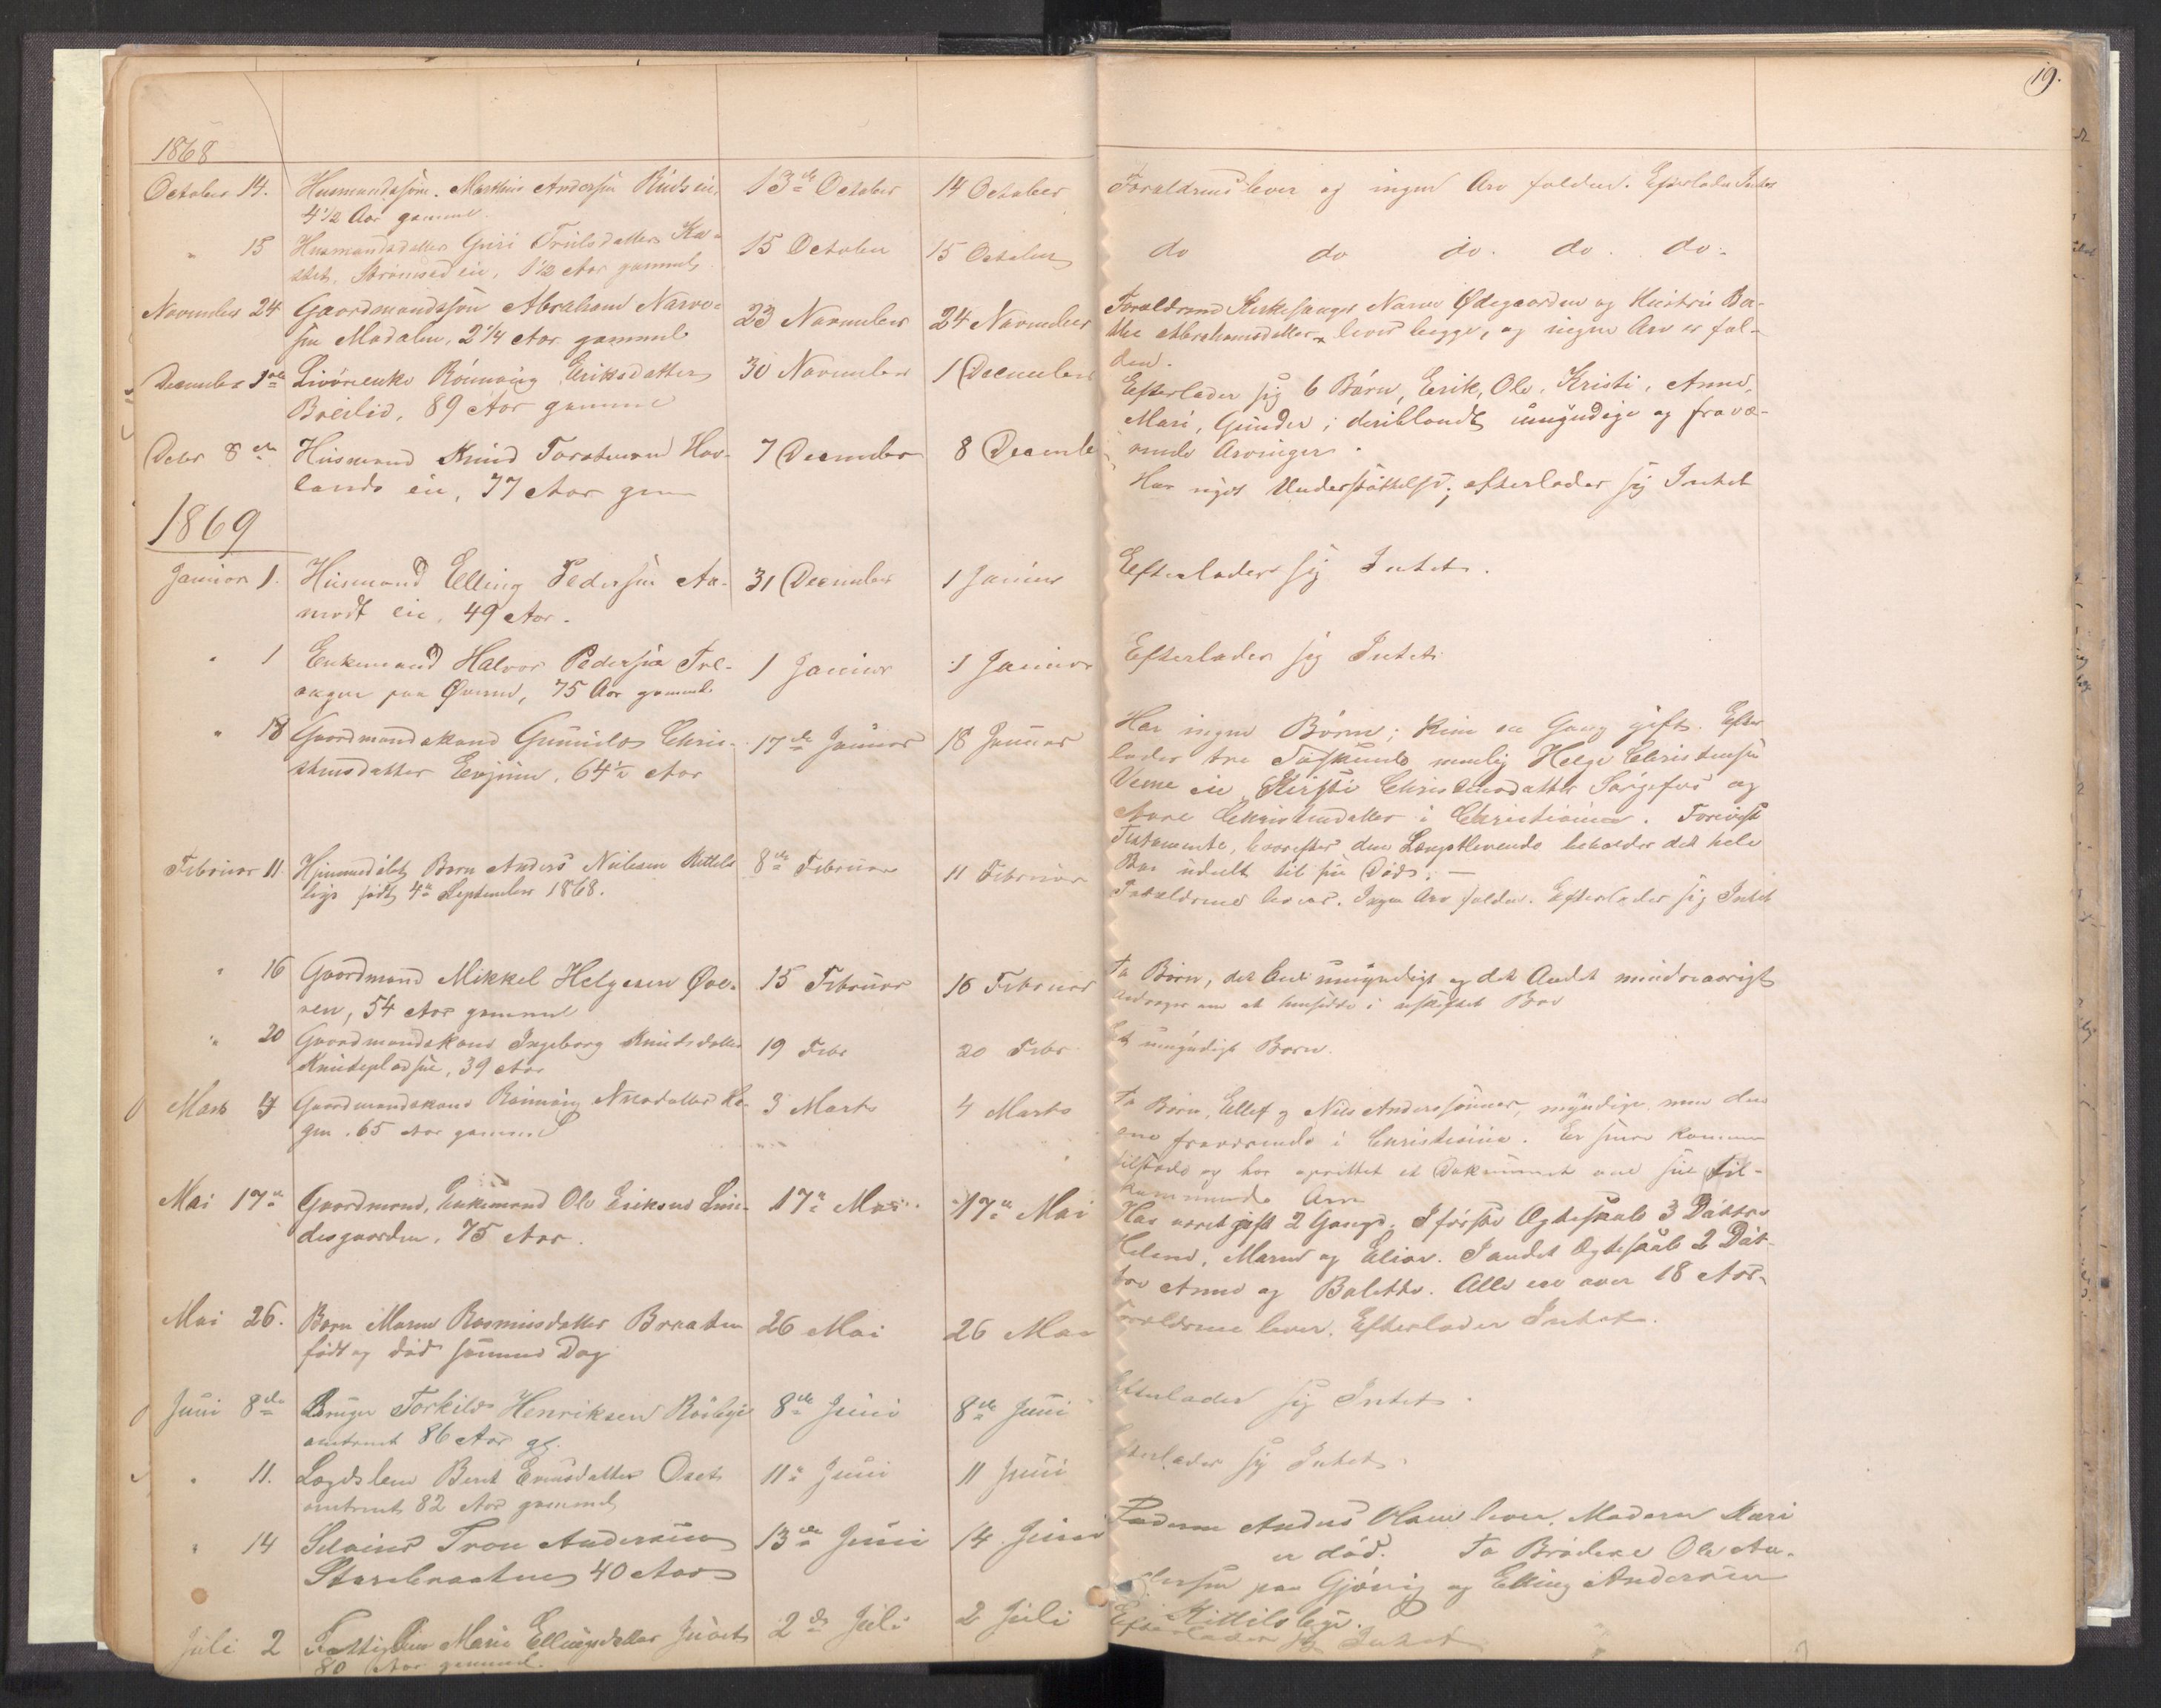 19.
1868
October 14. Husmandssøn. Mathias Andersen Rudseie, 13de October 14 October
4 1/2 Aar gammel.
Forældrene lever og ingen Arv falden. Efterlader Intet
" 15 Husmandsdatter Guri Trulsdatter 15 October 15 October
eie, 1 1/2 Aar gammel
do do do. do. do.
November 24 Gaardmandssøn Abraham 23 November 24 November
Modalen, 2 1/4 Aar gammel
Forældrene Kirkesanger Ødegaarden og Hustru
Abrahamsdatter lever begge, og ingen Arv er fal-
den.
December 1ste Livøreenke Rønnaug Eriksdatter 30 November 1 December
Breilid, 89 Aar gammel
Efterlader sig 6 Børn, Erik, Ole, Kristi, Anne,
Mari, Gunder; deriblandt umyndige og fravæ-
rende Arvinger.
Decbr 8de Husmand Knud Torstensen Hav- 7 December 8 Decembe
lands eie, 77 Aar gam
Har nydt Understøttelse; efterlader sig Intet
1869
Januar 1. Husmand Elling Pedersen Aa- 31 December 1 Januar
modt eie, 49 Aar.
Efterlader sig Intet.
" 1 Enkemand Halvor Pedersen 1 Januar 1 Januar
75 Aar gammel
Efterlader sig Intet
" 18 Gaardmandskone Gunild Chri- 17de Januar 18 Januar
stensdatter Evjuen, 64 1/2 Aar
Har ingen Børn; Kun en Gang gift. Efter
lader tre Søskende nemlig Helge Christensen
Veme eie, Kirsti Christensdatter og
Anne Christensdatter i Christiania.
Testamente, hvorefter den Længstlevende beholder det hele
Bo udelt til sin Død. —
Februar 11. Hjemmedøbt Barn Anders Nielsen Kittels 8de Februar 11 Februar
bye født 4de September 1868.
Forældrene lever. Ingen Arv falden. Efterlader sig Intet
" 16 Gaardmand Mikkel Helgesen Øve- 15 Februar 16 Februar
ren, 54 Aar gammel
To Børn, det Ene umyndigt og det Andet mindreaarigt
Andrager om at hensidde i uskiftet Bo
" 20 Gaardmandskone Ingeborg Knudsdatter 19 Febr 20 Febr.
Knudepladsen, 39 Aar
Et umyndigt Barn.
Marts 4 Gaardmandskone Rønnaug 3 Marts 4 Marts
65 Aar gammel
To Børn, Ellef og Nils Anderssønner, myndige, men den
ene fraværende i Christiania. Er senere kommen
tilstede og har oprettet et Dokument om sin til-
kommende Arv
Mai 17de Gaardmand, Enkemand Ole Eriksen Lin- 17de Mai 17de Mai
desgaarden, 75 Aar.
Har været gift 2 Gange. I første Ægteskab 3 Døttre
Helene, Maren og Eliav. I andet Ægteskab 2 Døt-
tre Anne og Bolette. Alle ere over 18 Aar.
Mai 26. Barn Maren Rasmusdatter Braaten 26 Mai 26 Mai
født og død samme Dag
Forældrene lever. Efterlader Intet.
Juni 8de Bruger Torkild Henriksen 8de Juni 8de Juni
omtrent 86 Aar gl.
Efterlader sig Intet.
" 11. Lægdslem Berit Evensdatter Oset 11te Juni 11 Juni
omtrent 82 Aar gammel
Efterlader sig Intet.
" 14 Selveier Tron Andersen 13de Juni 14 Juni
Storebraaten 40 Aar
Faderen Anders Olsen lever. Moderen Mari
er død. To Brødre Ole An-
dersen paa Gjøvig og Elling Andersen
Kittilsbye.
Juli 2 Fattiglem Marie Ellingsdatter Juvet 2de Juli 2 Juli
80 Aar gammel.
Efterlader sig Intet